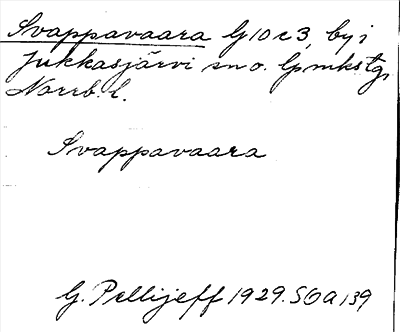 Svappavaara G10c3, by i
Jukkasjärvi sn o. lpmkstg,
Norrb. l.
Svappavaara
G. Pellijeff 1929. SOA 139